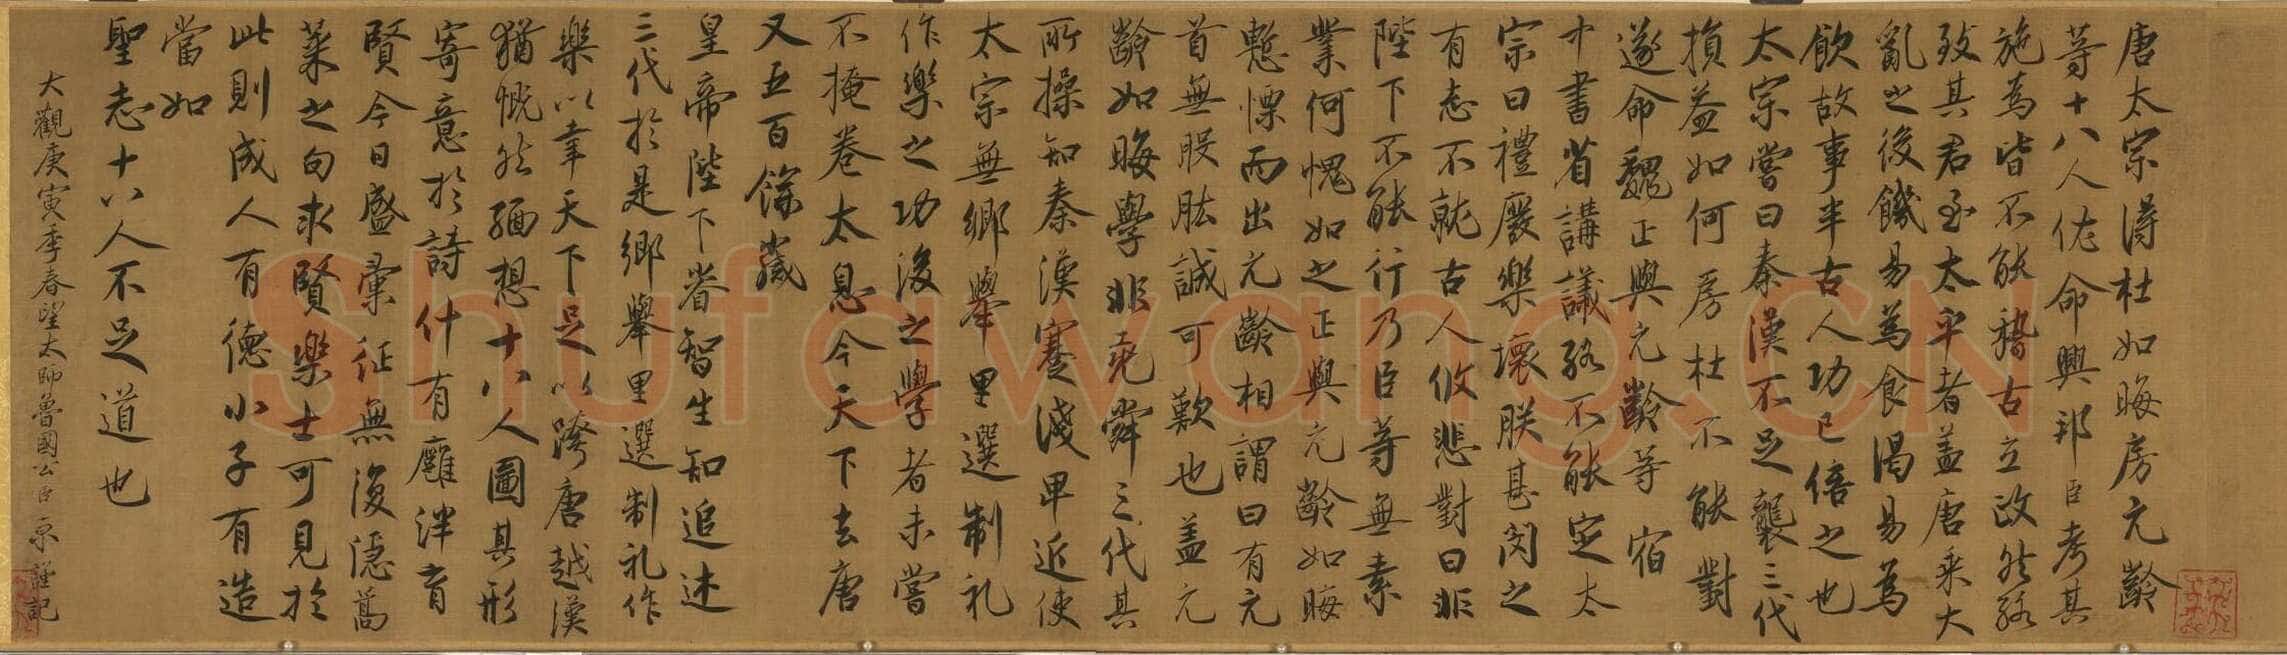 唐太宗得杜如晦房元齡
等十八人佐命興邦臣考其
施為皆不能稽古立政然弥
致其君至太平者蓋唐乘大
亂之後饑易為食渴易為
飲故事半古人功已倍之也
太宗嘗曰秦漢不足襲三代
損益如何房杜不能對
遂命魏正與元齡等宿
中書省講議弥不能定太
宗曰禮廢樂壞朕甚閔之
有志不就古人攸悲對曰非
陛下不能行乃臣等無素
業何愧如之正與元齡如晦
慙慄而出元齡相謂曰有元
首無股肱誠可歎也蓋元
齡如晦學非堯舜三代其
所操知秦漢蹇淺卑近使
太宗無鄉舉里選制礼
作樂之功後之學者未嘗
不掩卷太息今天下去唐
又五百餘歲
皇帝陛下睿智生知追述
三代於是鄉舉里選制礼作
樂以幸天下足以跨唐越漢
猶慨然緬想十八人圖其形
寄意於詩什有廱泮育
賢今日盛彙征無復隱蒿
菜之句求賢樂士可見於
此則成人有德小子有造
當如
聖志十八人不足道也
大觀庚寅季春望太師魯國公臣京謹記
Shufawang.CN